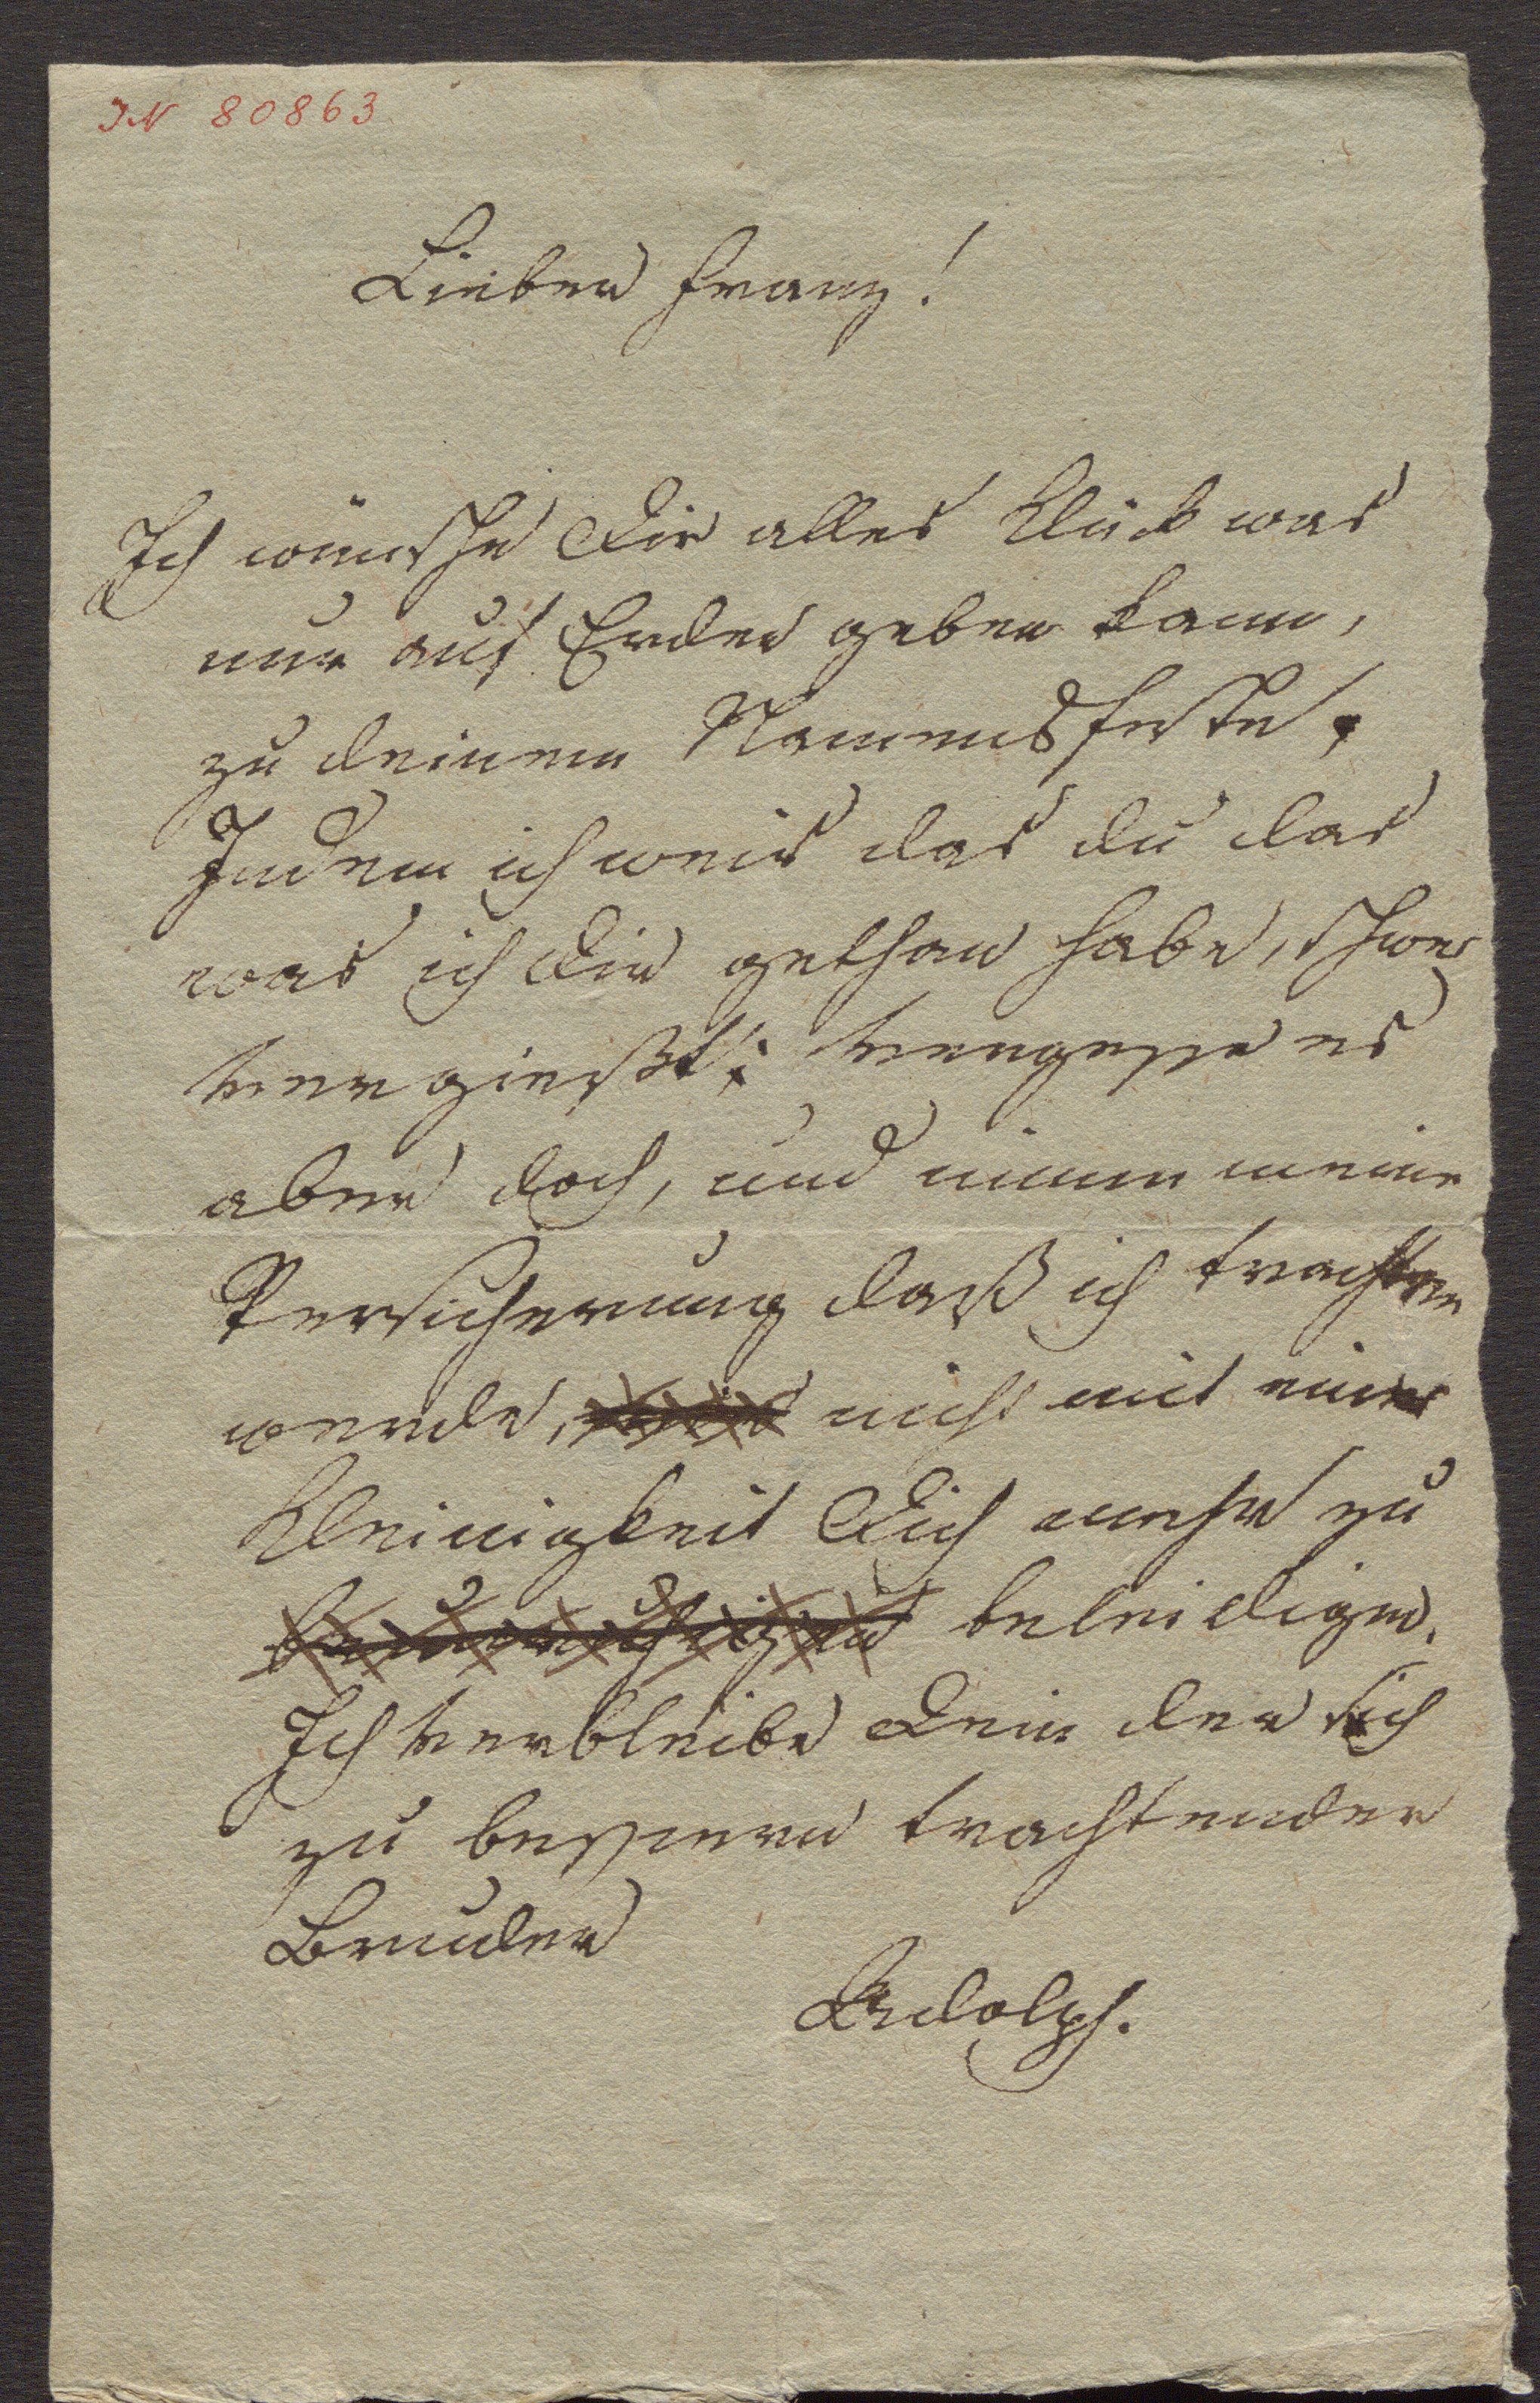 IN 80863
Lieber Franz!
Ich wünsche Dir alles Glück was
nur auf Erden geben kann,
zu deinem Namensfeste,
Indem ich weis das du das
was ich Dir gethan habe, schwer
vergießt; vergesse es
aber doch, und nimm meine
Versicherung daß ich trachten
werde, nicht mit einer
Kleinigkeit Dich mehr zu
beunruhigen beleidigen.
Ich verbleibe Dein der sich
zu bessern trachtender
Bruder
Adolph.